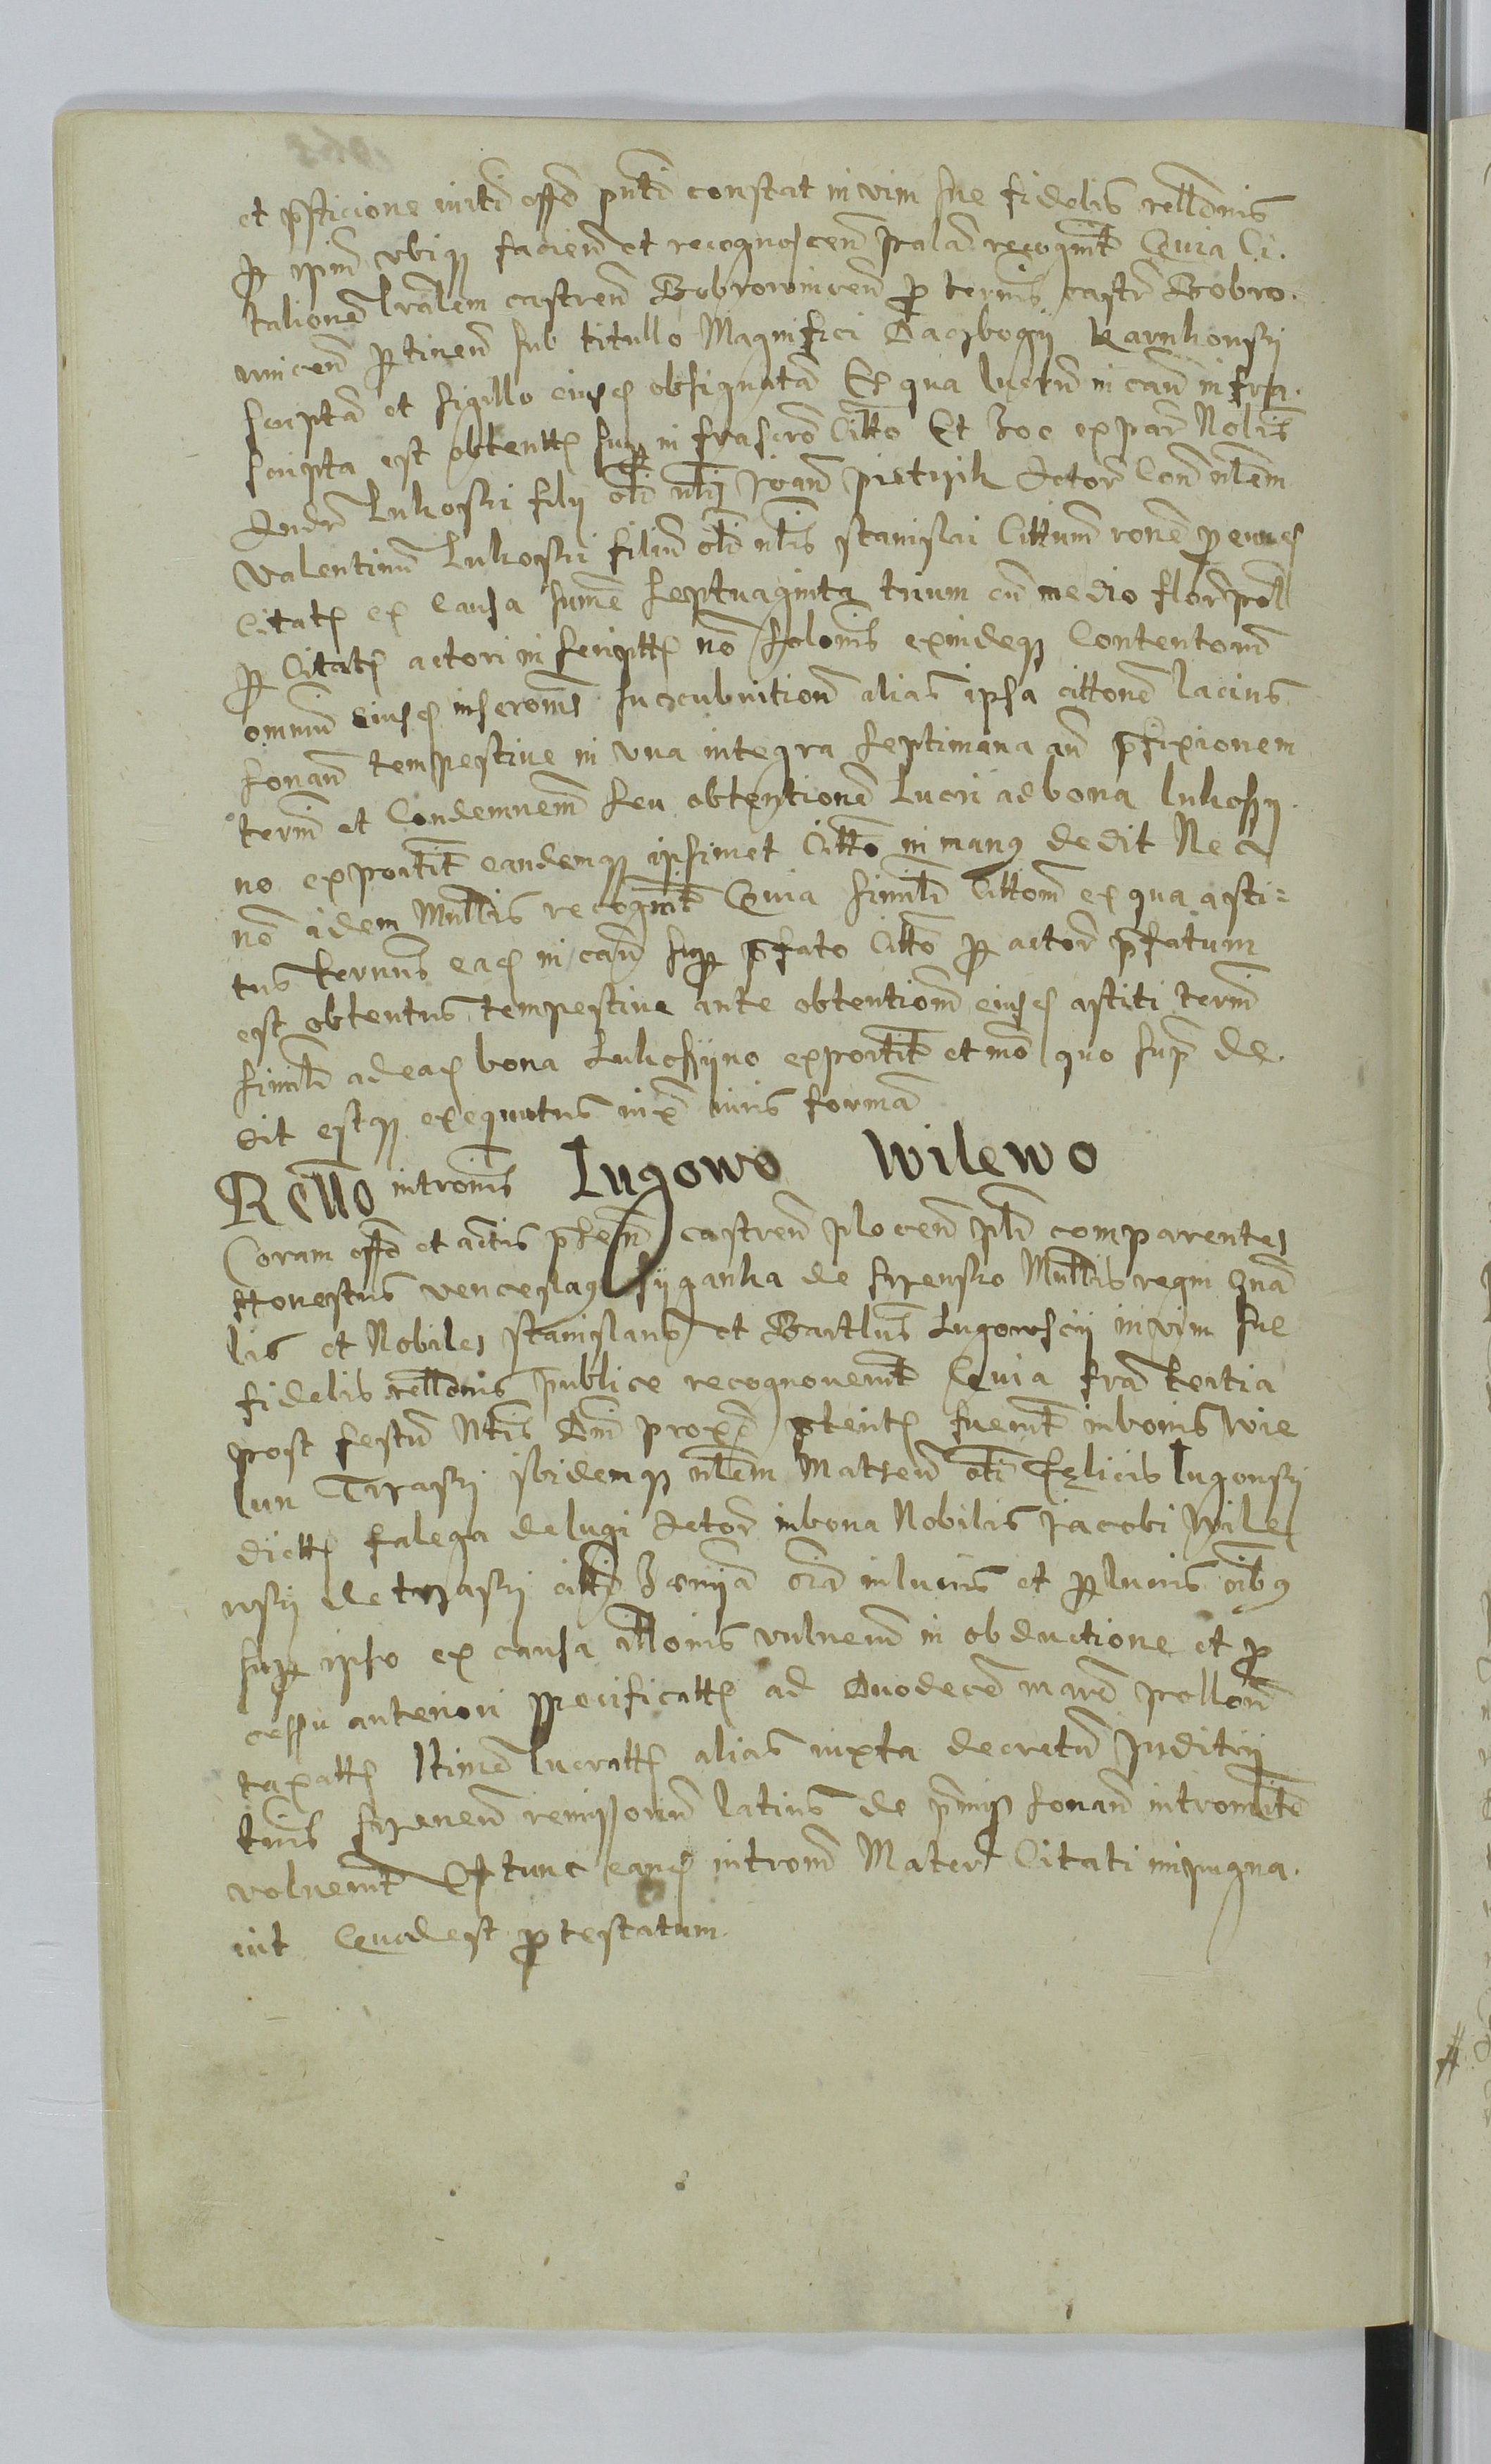 et pfticione iurti offo pnti constat in vim sue fidelis rellonis
p ipm vbiqz facien et recognoscen palā recognīt Quia Ci-
tationē lralem castren Bobrownicen p termis castr Bobro-
wnicen ptinen sub titullo Magnifici Dadzbogij Karnkowsky
scriptā et sigillo eiusd obsignatā Ex qua lucrū in cau infra-
scripta est obtentū sup infrascro Citto Et hoc ex par Nobis
Andr Lukoski filij oli nlis Joan pietrzik Actor Con nlem
Valentinū Lukoski filiū oli nlis stanislai Cittum ronē
Citati ex causa sume septuaginta trium cū medio flor pol
p Citatū actori inscriptt nō solonis exindeqz Contentorū
omniū eiusd inseronis succubuition alias ipsa cittonē lacius
sonan tempestiue in vna integra septimana an pfixionem
termi et Condemnem seu obtentionē lucri ad bona lukosky-
no exportit eandemqz ipsimet Citto in manus dedit Nec
nō idem Mnllis recognit Quia simili Cittom ex qua asti-
tus termis ead in cau sup pfato Citto p actor pfatum
est obtentus tempestiue ante obtentiom eiusd astiti termi
simili ad ead bona Lukoskyno exportit et mō quo supr de-
dit estqz exequutus iux iuris formā
Rello intromis Lugowo Wilewo
Coram offo et actis pntibn castren plocen pli comparentes
Honestus venceslaus Cyganka de srzensko Mnllis regni gnā
lis et Nobiles stanislaus et Bartlus Lugowscij in vim sue
fidelis rellonis publice recognouernt Quia fra tertia
post festū Ntis Dni prox fuernt in bonis wie
lun Trzasky ibidemqz nlem Matheū oli Felicis lugowsky
dictū falega de lugi Actor in bona Nobilis Jacobi Wile
wsky de trzasky citti oīa in lucris et plucris oibus
sup ipso ex causa illonis vulnerū in obductione et p
cessu anteriori specificatt ad duodecē marc pollon
taxatt ltime lucratt alias iuxta decretū Juditij
tris srzenen remissorū latius de pmis sonan intromittē
voluernt Extunc eand introm Mater Citati impugna-
uit Quod est ptestatum